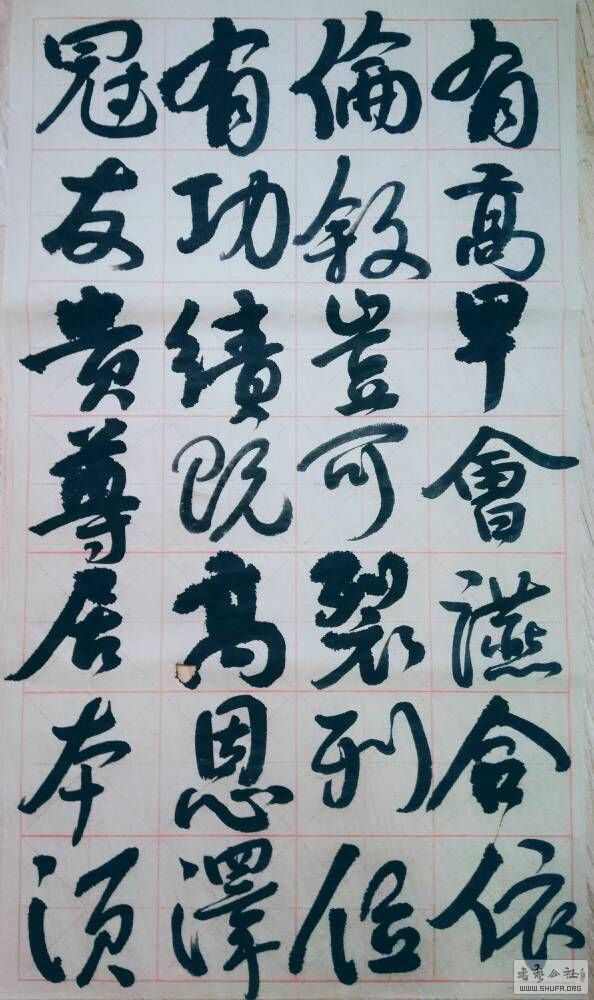 有高卑會讌合依
倫敘豈可裂列位
有功績既高恩澤
冠友貴尊居本須
WWW.SHUFA.ORG